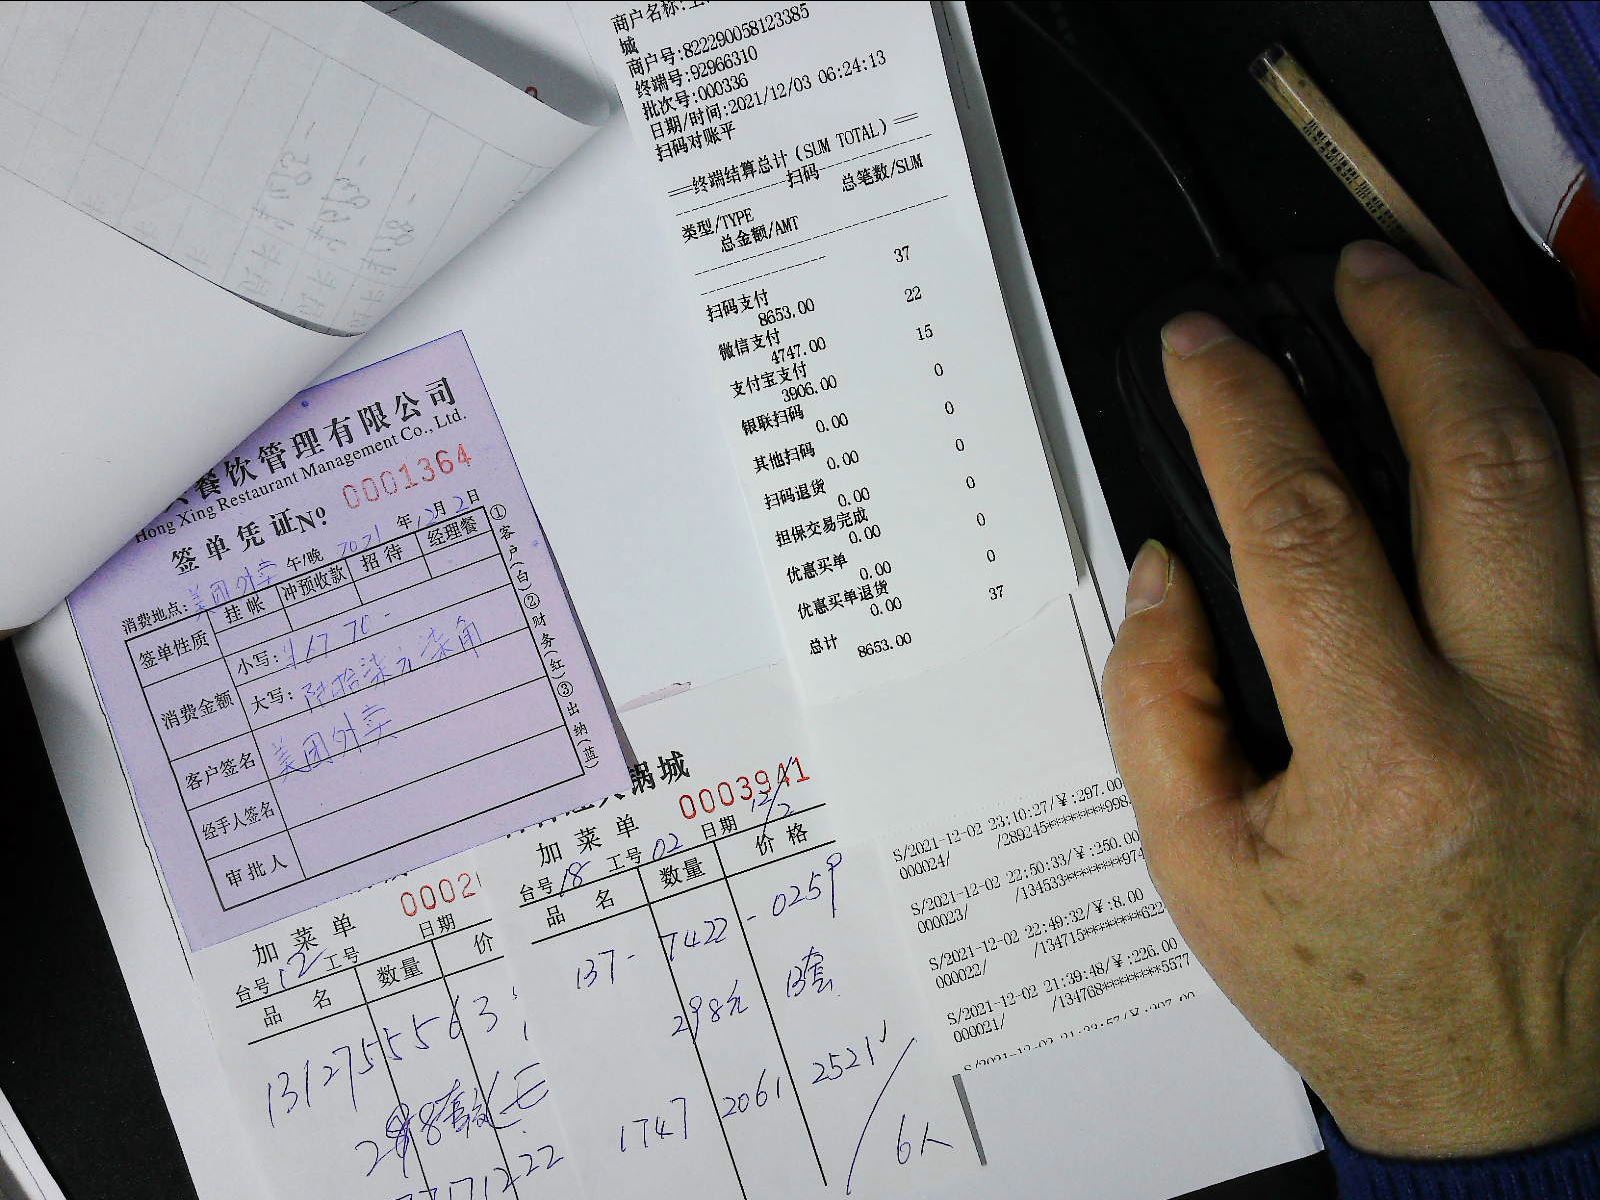 城
商户号:822290058123385
终端号:92966310
批次号:000336
日期/时间:2021/12/03 06:24:13
扫码对账平
==终端结算总计(SUM TOTAL)==
扫码
类型/TYPE 总笔数/SUM
总金额/AMT
扫码支付 37
8653.00
微信支付 22
4747.00
支付宝支付 15
3906.00
银联扫码 0
0.00
其他扫码 0
0.00
扫码退货 0
0.00
担保交易完成 0
0.00
优惠买单 0
0.00
优惠买单退货 0
0.00
总计 37
8653.00
餐饮管理有限公司
Hong Xing Restaurant Management Co., Ltd.
签单凭证No. 0001364
消费地点:美团外卖 午/晚 2021年12月2日
签单性质 挂帐 冲预收款 招待 经理餐
消费金额 小写:¥67.70-
大写:陆拾柒元柒角
客户签名 美团外卖
经手人签名
审批人
①客户(白)②财务(红)③出纳(蓝)
锅城
加菜单 0003941
台号18 工号02 日期12/2
品名 数量 价格
137-7422-0259
298元 B套
1747 2061 2521
6人
加菜单
台号12 工号 日期
品名 数量 价
S/2021-12-02 23:10:27/¥:297.00
000024/ /289245*******998
S/2021-12-02 22:50:33/¥:250.00
000023/ /134533*******974
S/2021-12-02 22:49:32/¥:8.00
000022/ /134715*******622
S/2021-12-02 21:39:48/¥:226.00
000021/ /134768*******5577